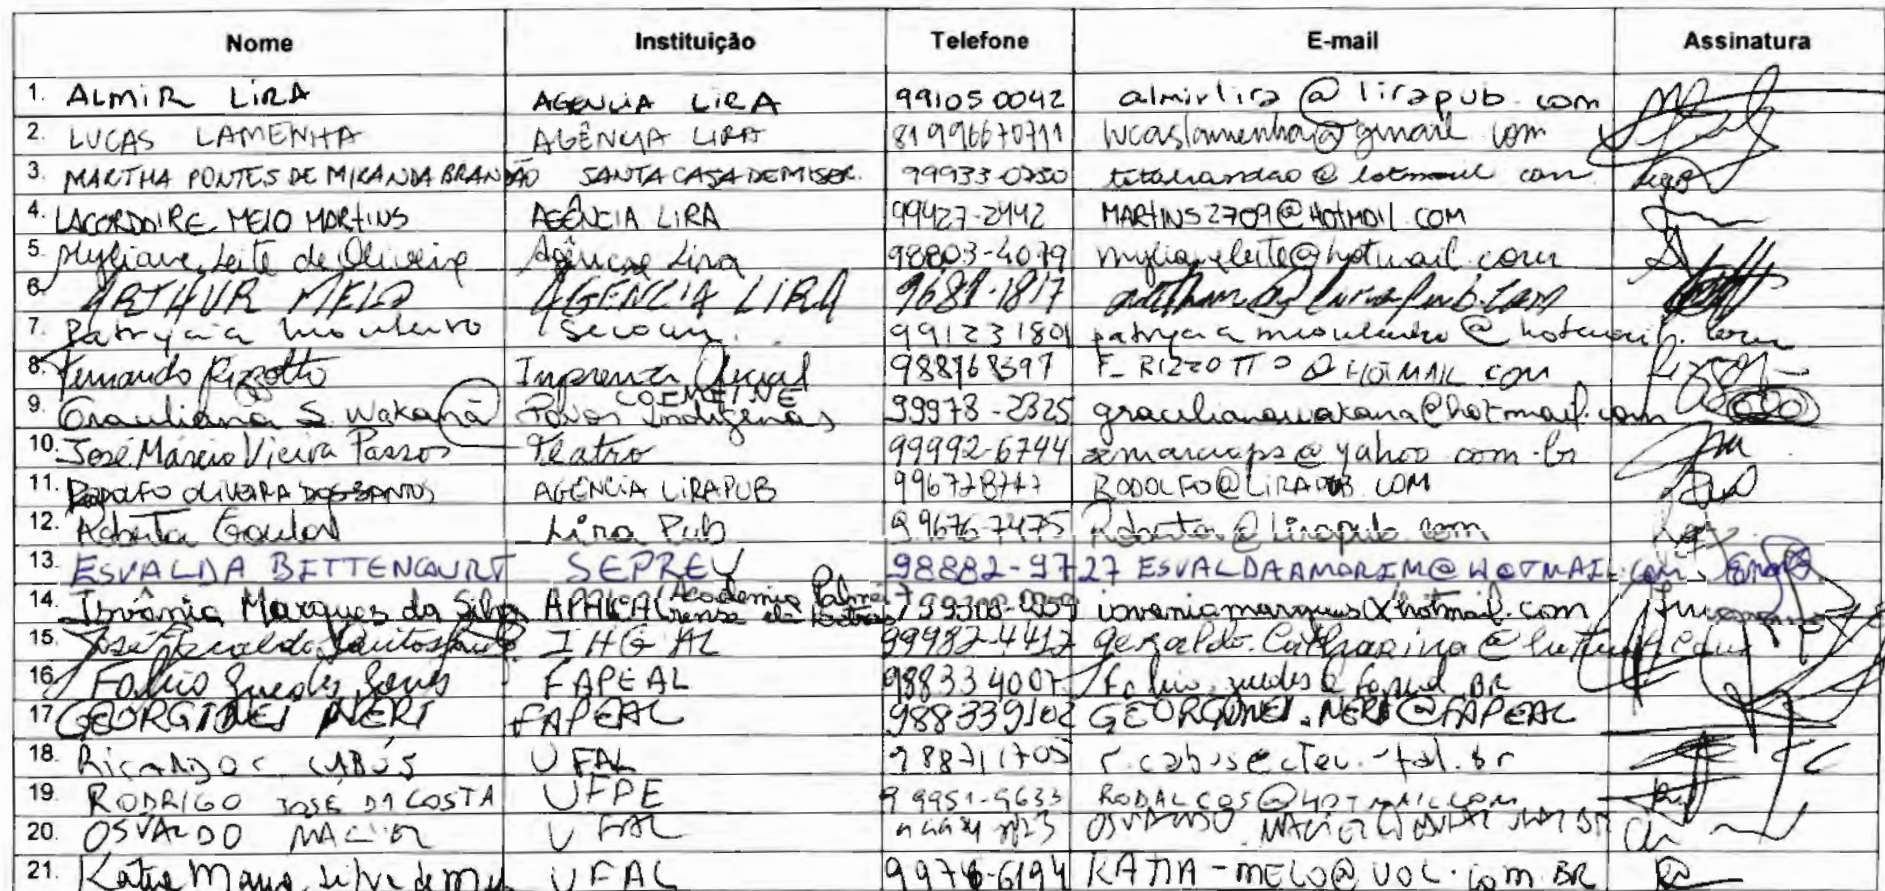 Nome Instituição Telefone E-mail Assinatura
1. ALMIR LIRA AGENCIA LIRA 991050042 almirlira@lirapub.com
2. LUCAS LAMENHA AGÊNCIA LIRA 81996670711 lucaslamenha@gmail.com
3. MARTHA PONTES DE MIRANDA BRANDÃO SANTA CASA DE MISER. 99933-0750
4. LACORDAIRE MELO MARTINS AGÊNCIA LIRA 99427-2442 MARTINS2709@HOTMAIL.COM
5. Myliane Leite de Oliveira Agência Lira 98803-4079 mylianeleite@hotmail.com
6. ARTHUR MELO AGENCIA LIRA 9681-1817 arthur@lirapub.com
7. Patrycia Monteiro Secom. 991231801 patryciamonteiro@hotmail.com
8. Fernando Rizzotto Imprensa Oficial 988768397 F_RIZZOTTO@HOTMAIL.COM
9. Graciliana S. Wakanã COEMEINE Povos Indígenas 99978-2325 gracilianawakana@hotmail.com
10. José Márcio Vieira Passos Teatro 99992-6744 zemarciops@yahoo.com.br
11. RODOLFO OLIVEIRA DOS SANTOS AGÊNCIA LIRAPUB 996728747 RODOLFO@LIRAPUB.COM
12. Roberta Goulart Lira Pub 99676-7475 Roberta@lirapub.com
13. ESVALDA BITTENCOURT SEPREV 98882-9727 ESVALDAAMORIM@HOTMAIL.com
14. Isvânia Marques da Silva APALCA (Academia Palmeirense de Letras) isvaniamarques@hotmail.com
15. José Geraldo I H G AL 99982-4412
16. Fabio Guedes Gomes FAPEAL 988334007 fabio.guedes@fapeal.BR
17. GEORGINEI NERI FAPEAL 988339102 GEORGINEI.NERI@FAPEAL
18. Ricardo C CABÚS UFAL 988711705
19. RODRIGO JOSÉ DA COSTA UFPE 99951-9633 RODALCOS@HOTMAIL.COM
20. OSVALDO MACIEL UFAL
21. Katia Maria Silva de Melo UFAL 99746-6194 KATIA-MELO@UOL.COM.BR